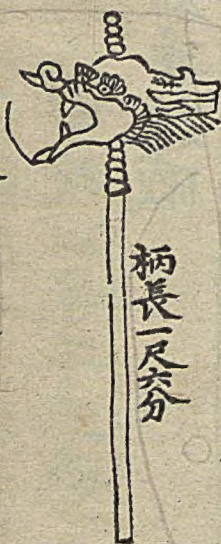 柄長一尺六分